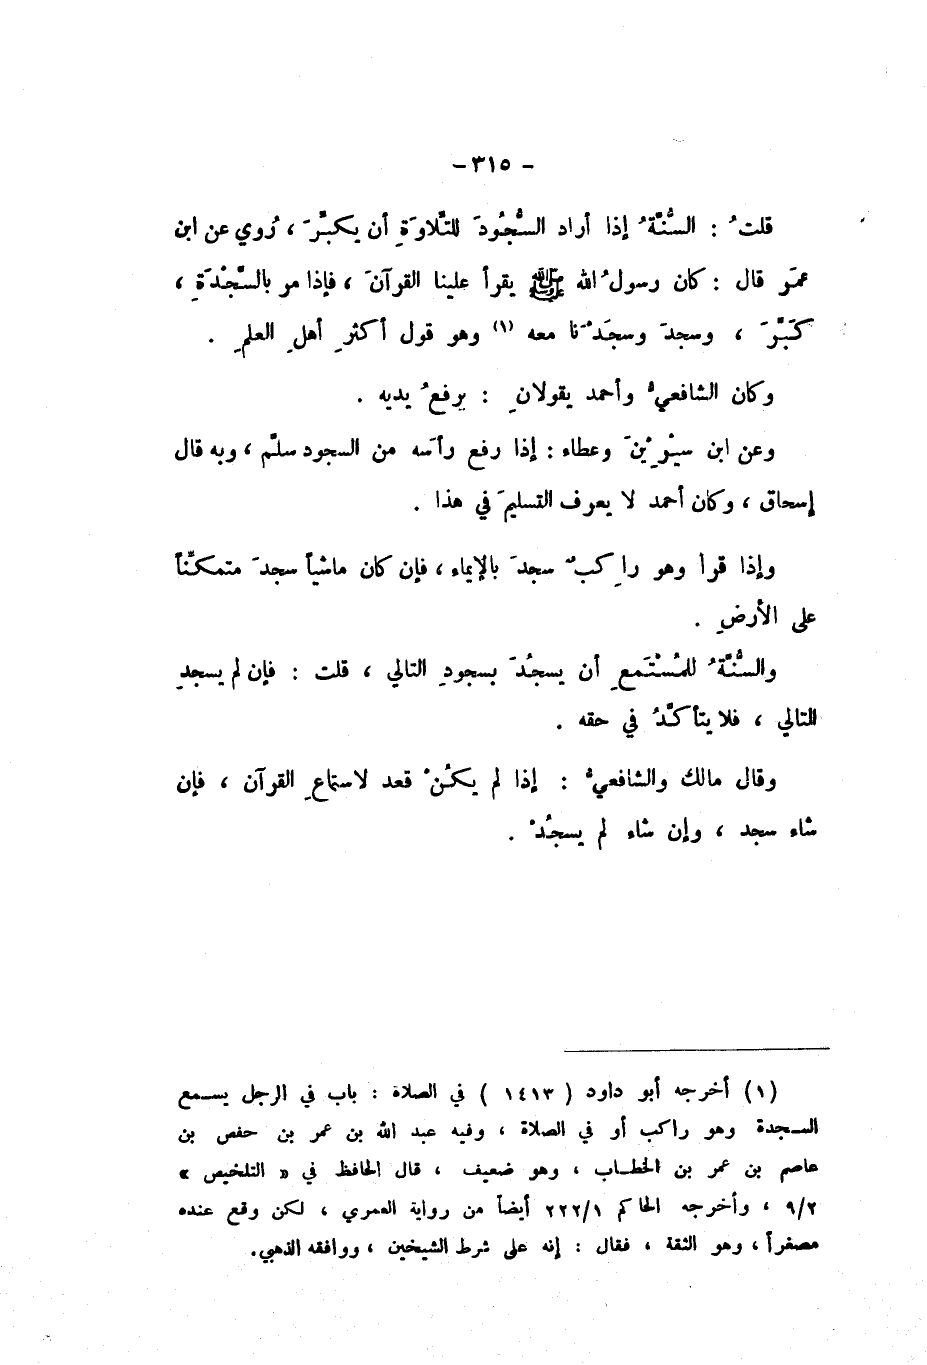 - ٣١٥ -
قلتُ : السُّنَّةُ إذا أراد السُّجُودَ للتَّلاوَةِ أن يكبِّرَ ، رُوي عن ابن
عمَر قال : كان رسولُ الله ﷺ يقرأ علينا القرآنَ ، فإذا مر بالسَّجْدَةِ ،
كَبَّرَ ، وسجدَ وسجَدْنَا معه (١) وهو قول أكثرِ أهلِ العلمِ .
وكان الشافعيُّ وأحمد يقولانِ : يرفعُ يديه .
وعن ابن سيْرِيْنَ وعطاء : إذا رفع رأسَه من السجود سلَّم ، وبه قال
إسحاق ، وكان أحمد لا يعرف التسليمَ في هذا .
وإذا قرأ وهو راكِبٌ سجدَ بالإيماء ، فإن كان ماشياً سجدَ متمكِّناً
على الأرضِ .
والسُّنَّةُ للمُسْتَمعِ أن يسجُدَ بسجودِ التالي ، قلت : فإن لم يسجدِ
التالي ، فلا يتأكَّدُ في حقه .
وقال مالك والشافعيُّ : إذا لم يكُنْ قعد لاستماعِ القرآن ، فإن
شاء سجد ، وإن شاء لم يسجُدْ .
(١) أخرجه أبو داود ( ١٤١٣ ) في الصلاة : باب في الرجل يسمع
السجدة وهو راكب أو في الصلاة ، وفيه عبد الله بن عمر بن حفص بن
عاصم بن عمر بن الخطاب ، وهو ضعيف ، قال الحافظ في « التلخيص »
٩/٢ ، وأخرجه الحاكم ٢٢٢/١ أيضاً من رواية العمري ، لكن وقع عنده
مصغراً ، وهو الثقة ، فقال : إنه على شرط الشيخين ، ووافقه الذهبي.